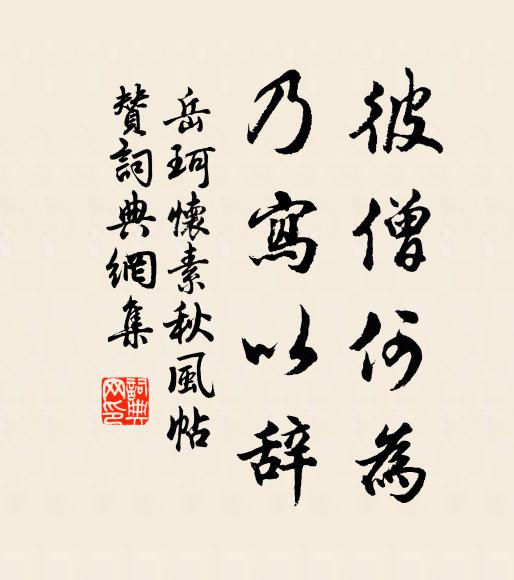 彼僧何為
乃寫以辞
岳珂懷素秋風帖
贊詞典網集
詞典
网印